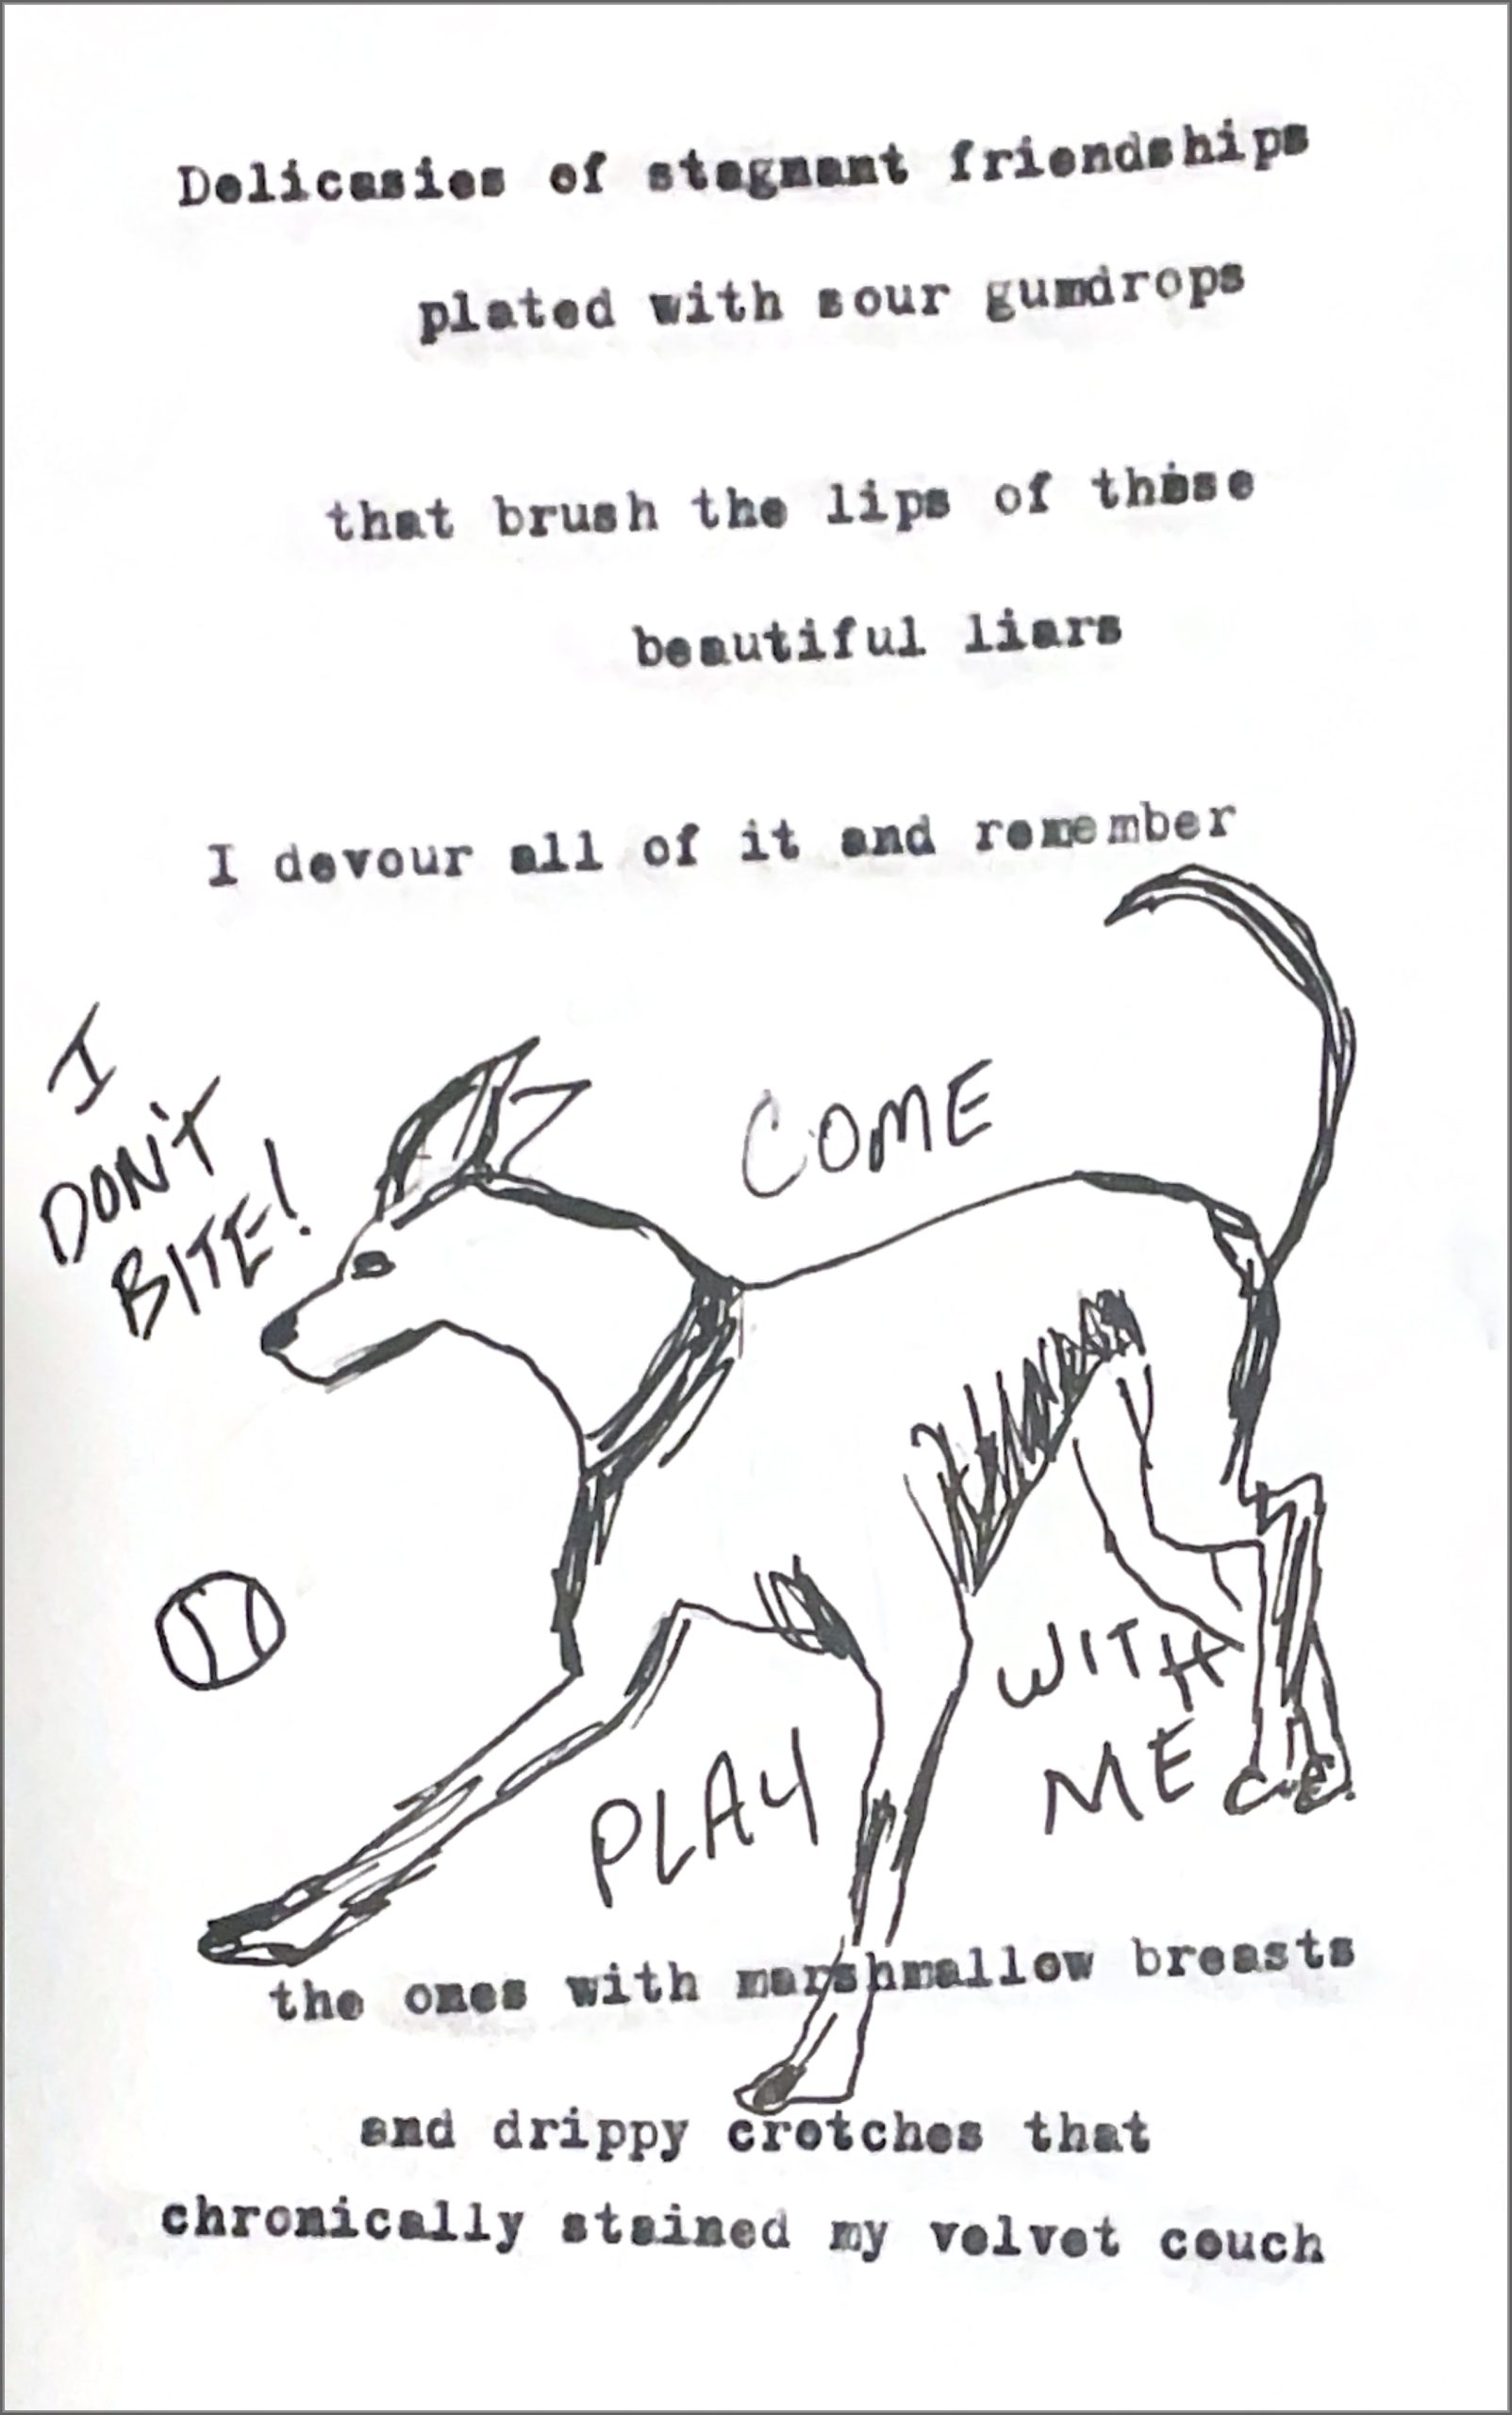 Delicasies of stagnant friendships
plated with sour gumdrops
that brush the lips of those
beautiful liars
I devour all of it and remember
I
DON'T
BITE!
COME
PLAY
WITH
ME
C.E.
the ones with marshmallow breasts
and drippy crotches that
chronically stained my velvet couch